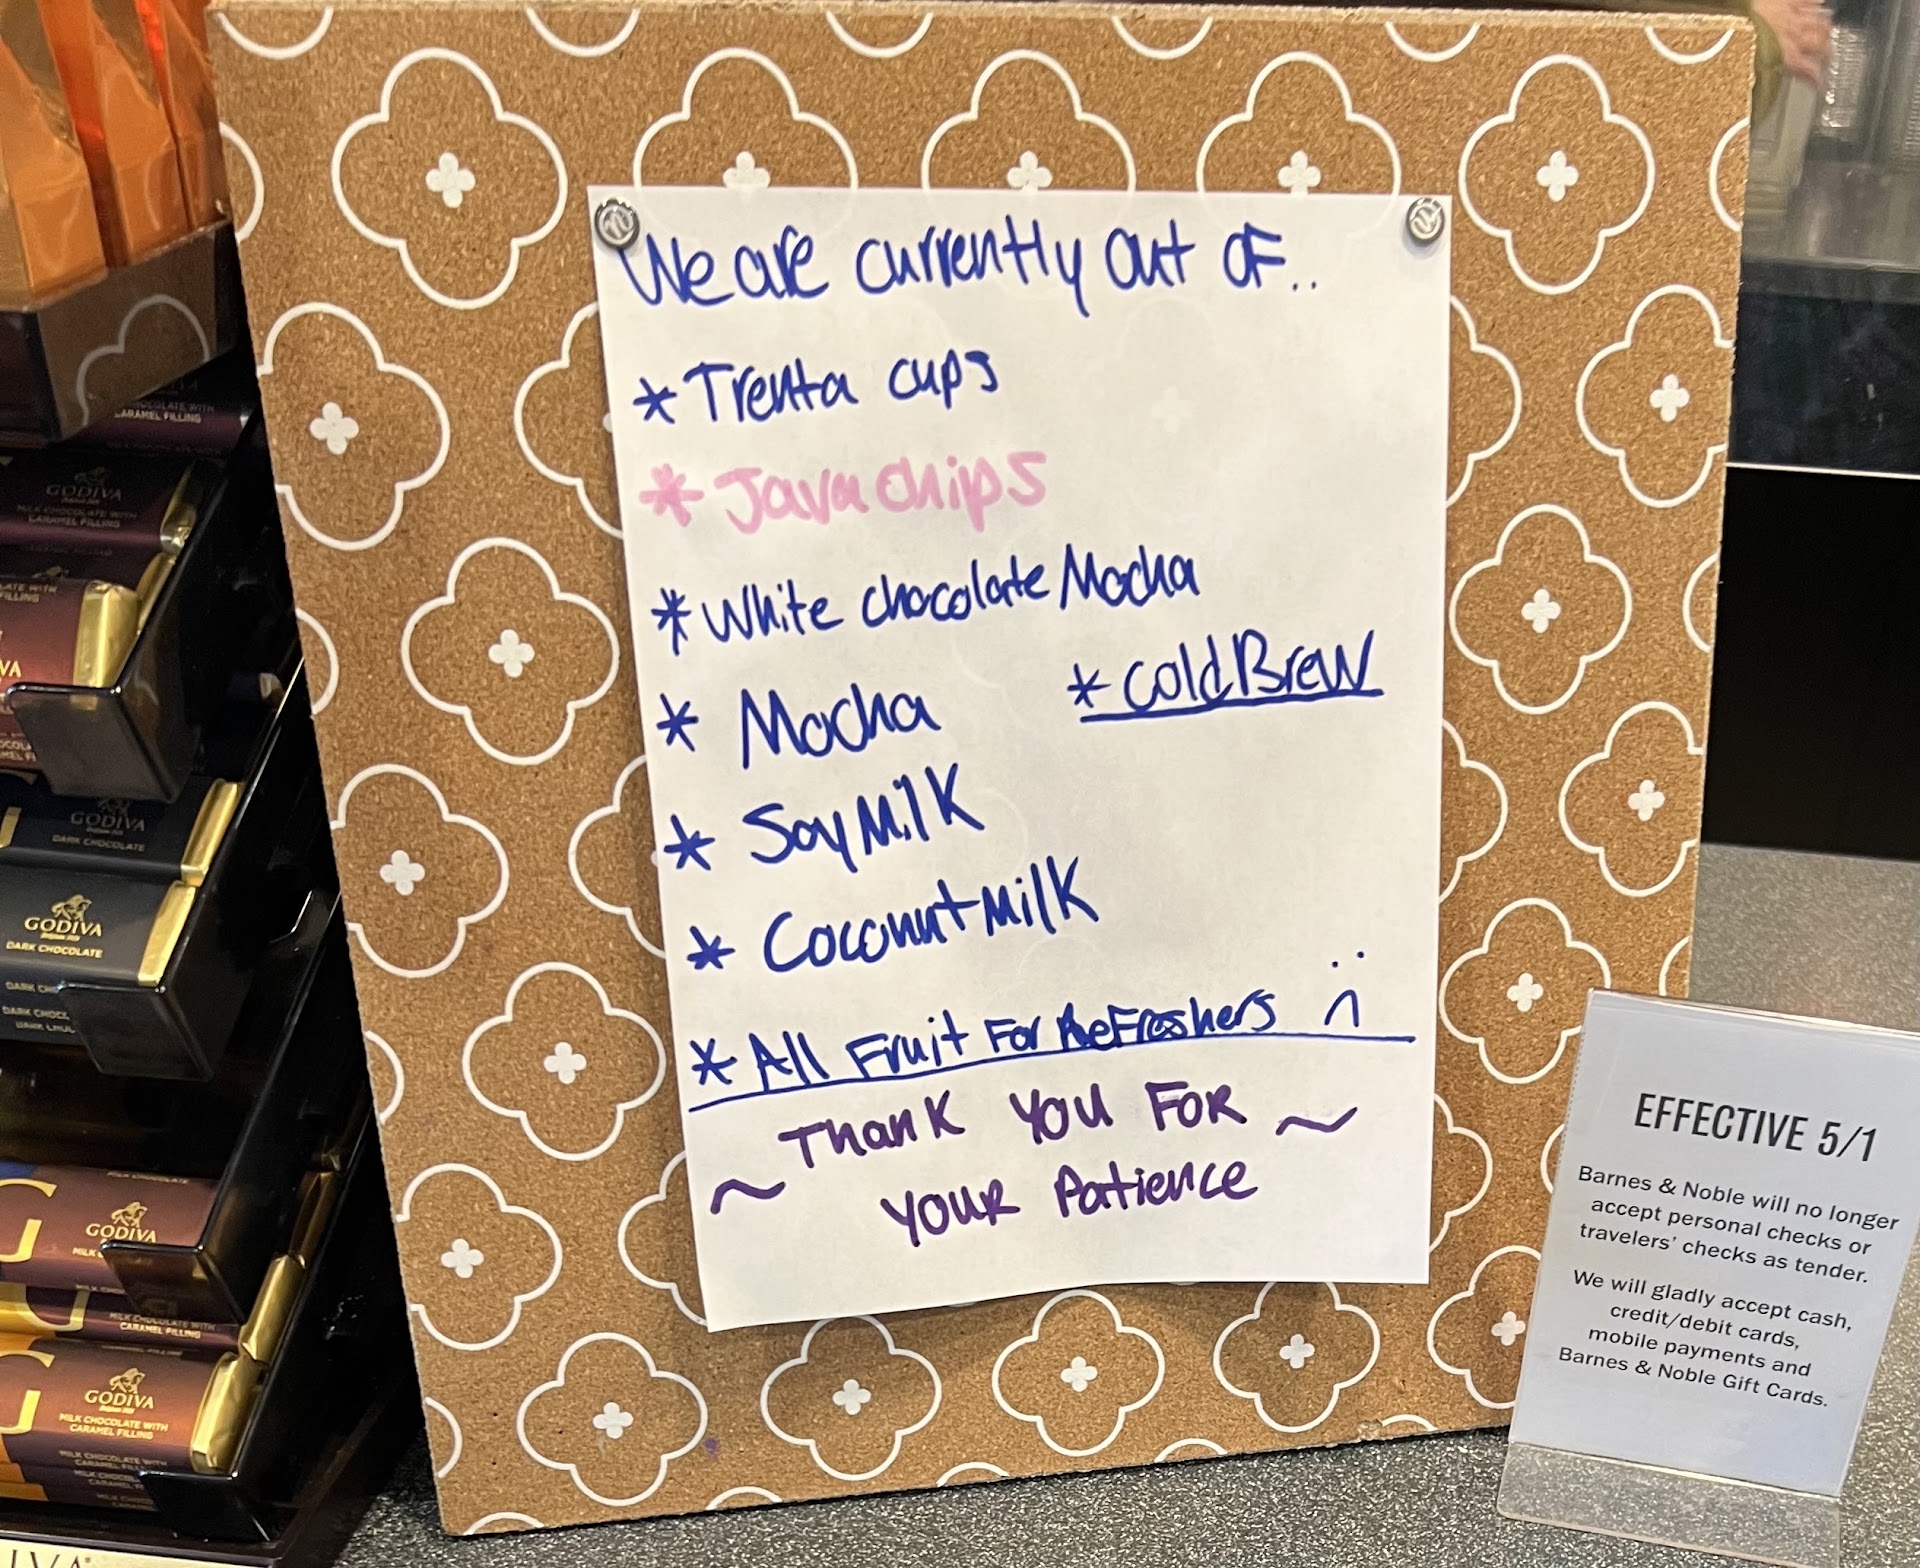 We are currently out of..
* Trenta cups
* Java chips
* White chocolate Mocha
* Mocha
* Cold Brew
* Soy Milk
* Coconut Milk
* All Fruit For ReFreshers :(
~ Thank You For ~
Your Patience
EFFECTIVE 5/1
Barnes & Noble will no longer
accept personal checks or
travelers' checks as tender.
We will gladly accept cash,
credit/debit cards,
mobile payments and
Barnes & Noble Gift Cards.
CARAMEL FILLING
GODIVA
MILK CHOCOLATE WITH
CARAMEL FILLING
GODIVA
DARK CHOCOLATE
GODIVA
DARK CHOCOLATE
GODIVA
MILK
MILK CHOCOLATE WITH
CARAMEL FILLING
G
GODIVA
MILK CHOCOLATE WITH
CARAMEL FILLING